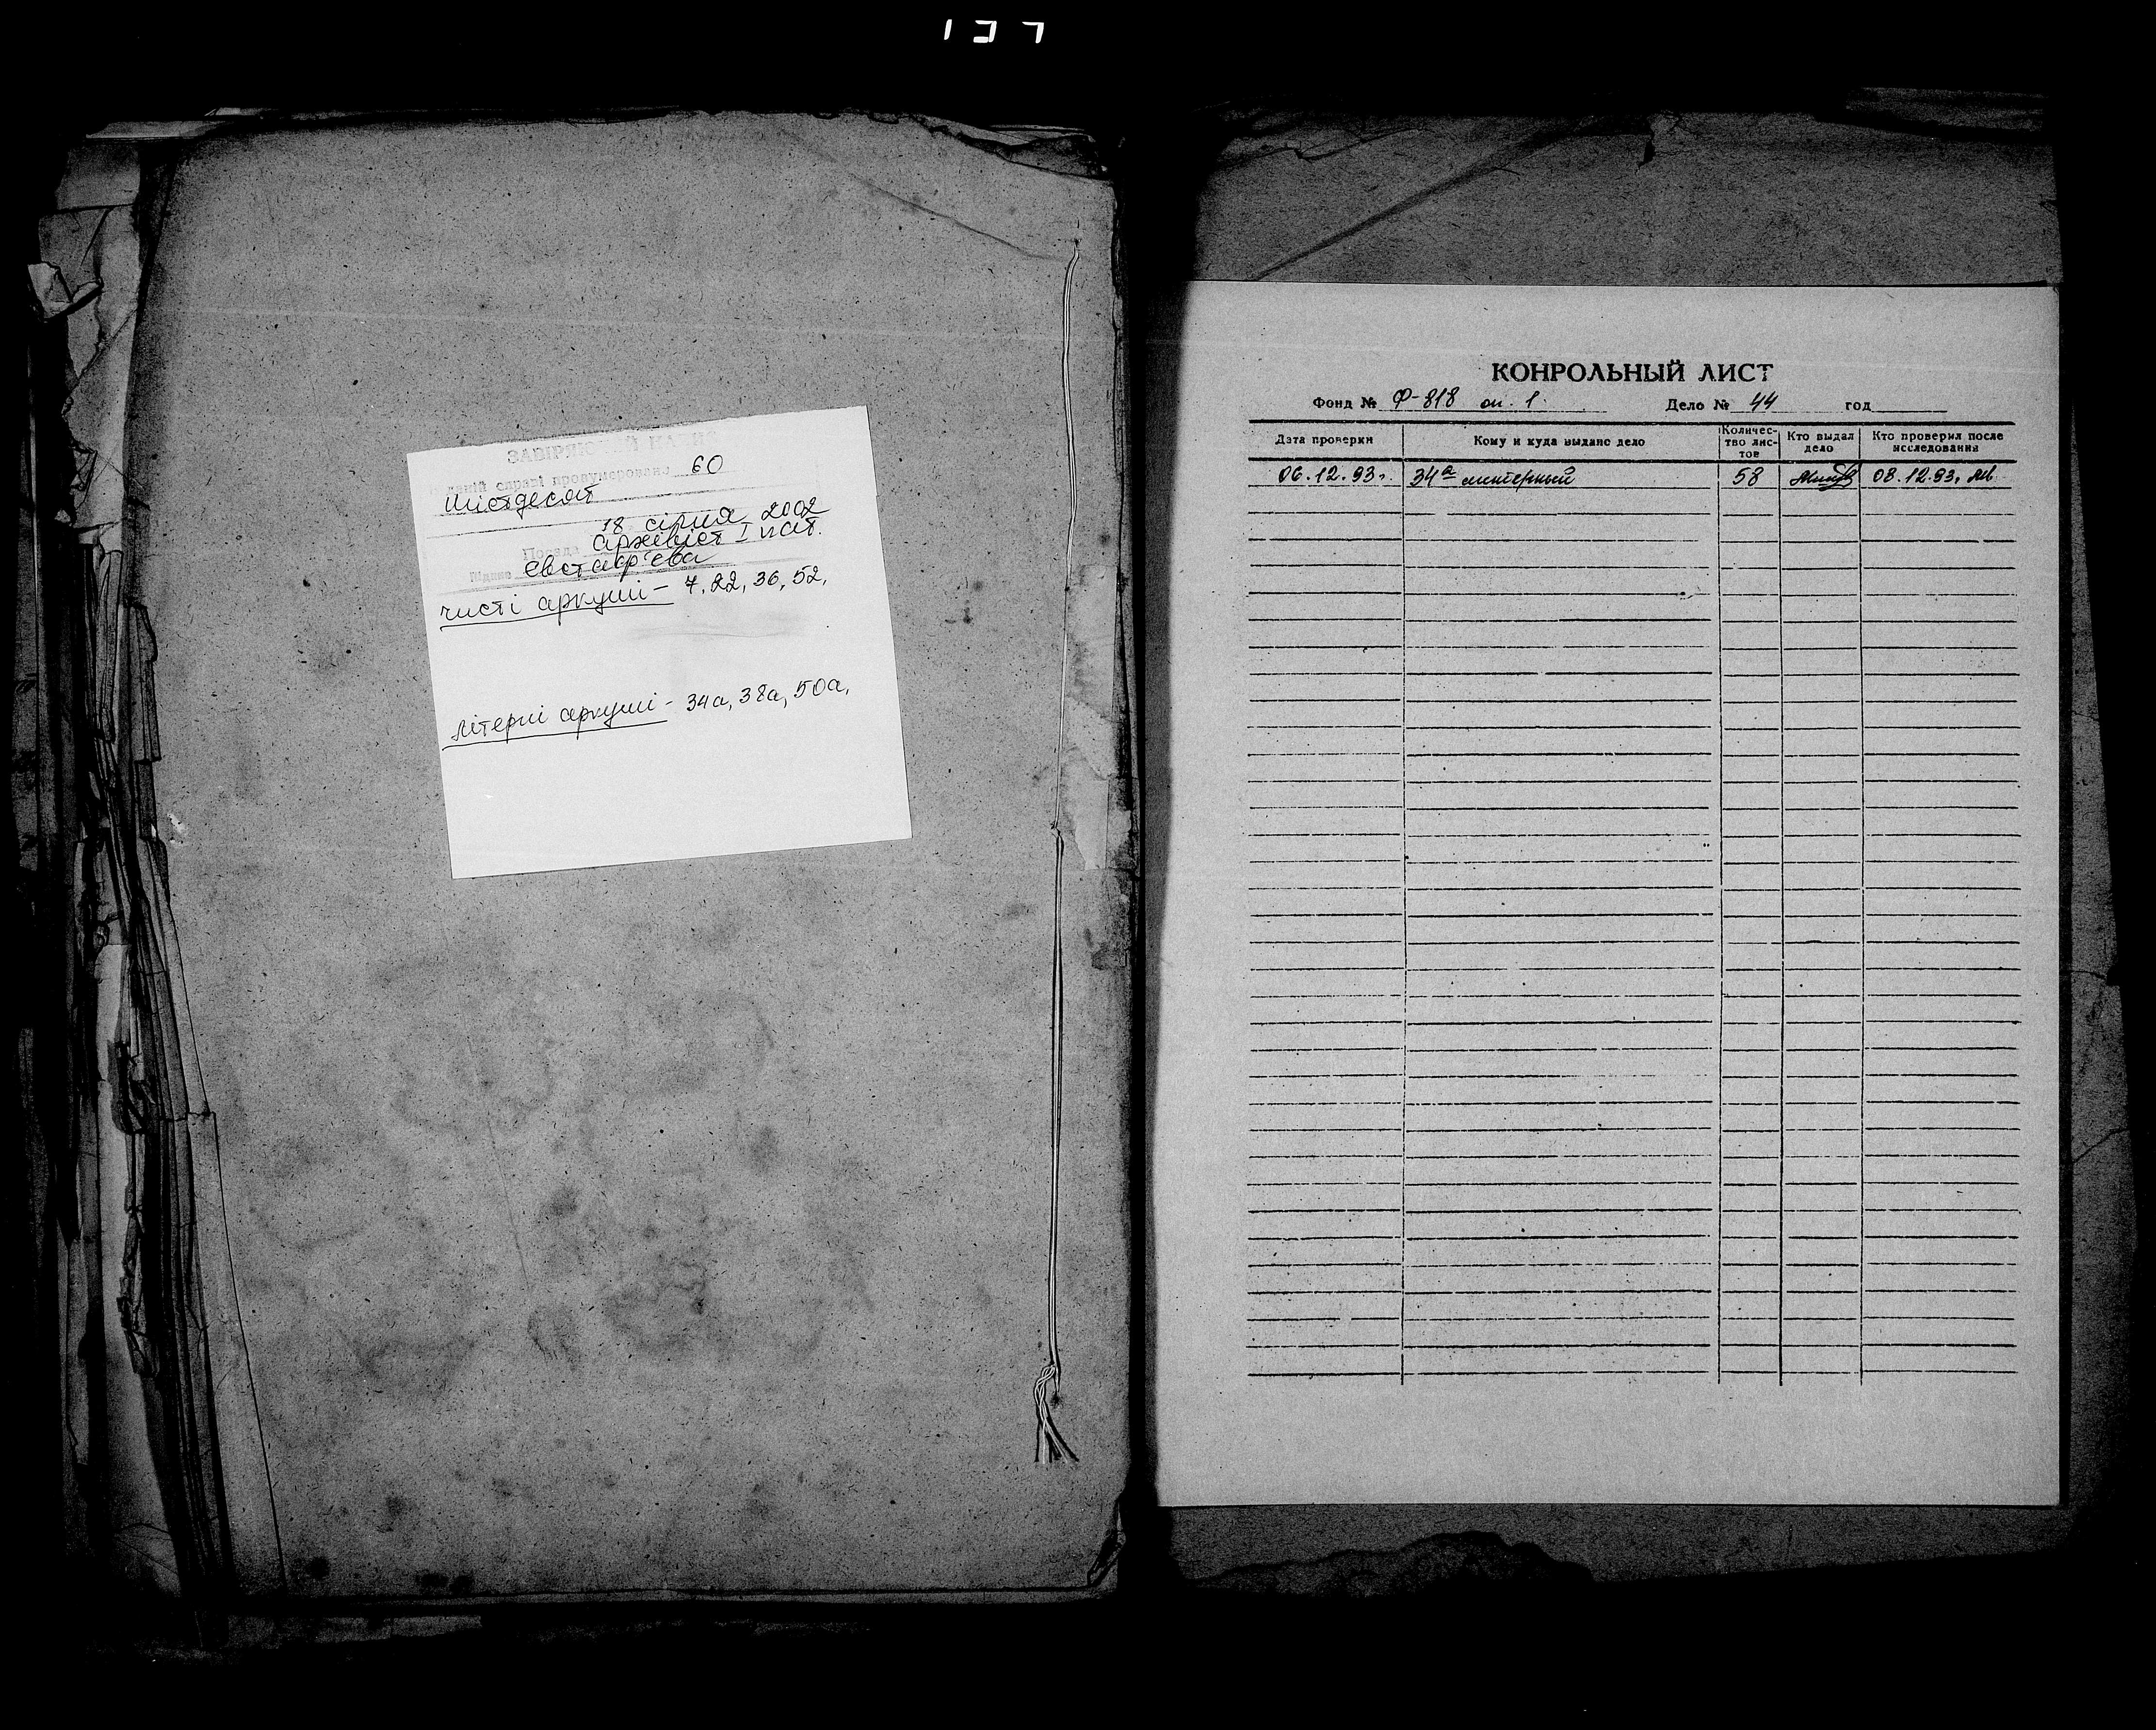 ЗАВІРЯЮЧИЙ НАПИС
даній справі пронумеровано 60
шістдесят
18 січня 2002
Посада архівіст I кат.
Підпис Євстаф'єва
чисті аркуші - 7, 22, 36, 52,
літерні аркуші - 34а, 38а, 50а,
КОНРОЛЬНЫЙ ЛИСТ
Фонд № Ф-818 оп. 1. Дело № 44 год
Дата проверки Кому и куда выдано дело Количес-тво лис-тов Кто выдал дело Кто проверил после исследования
06.12.93г. 34а литерный 58 08.12.93.